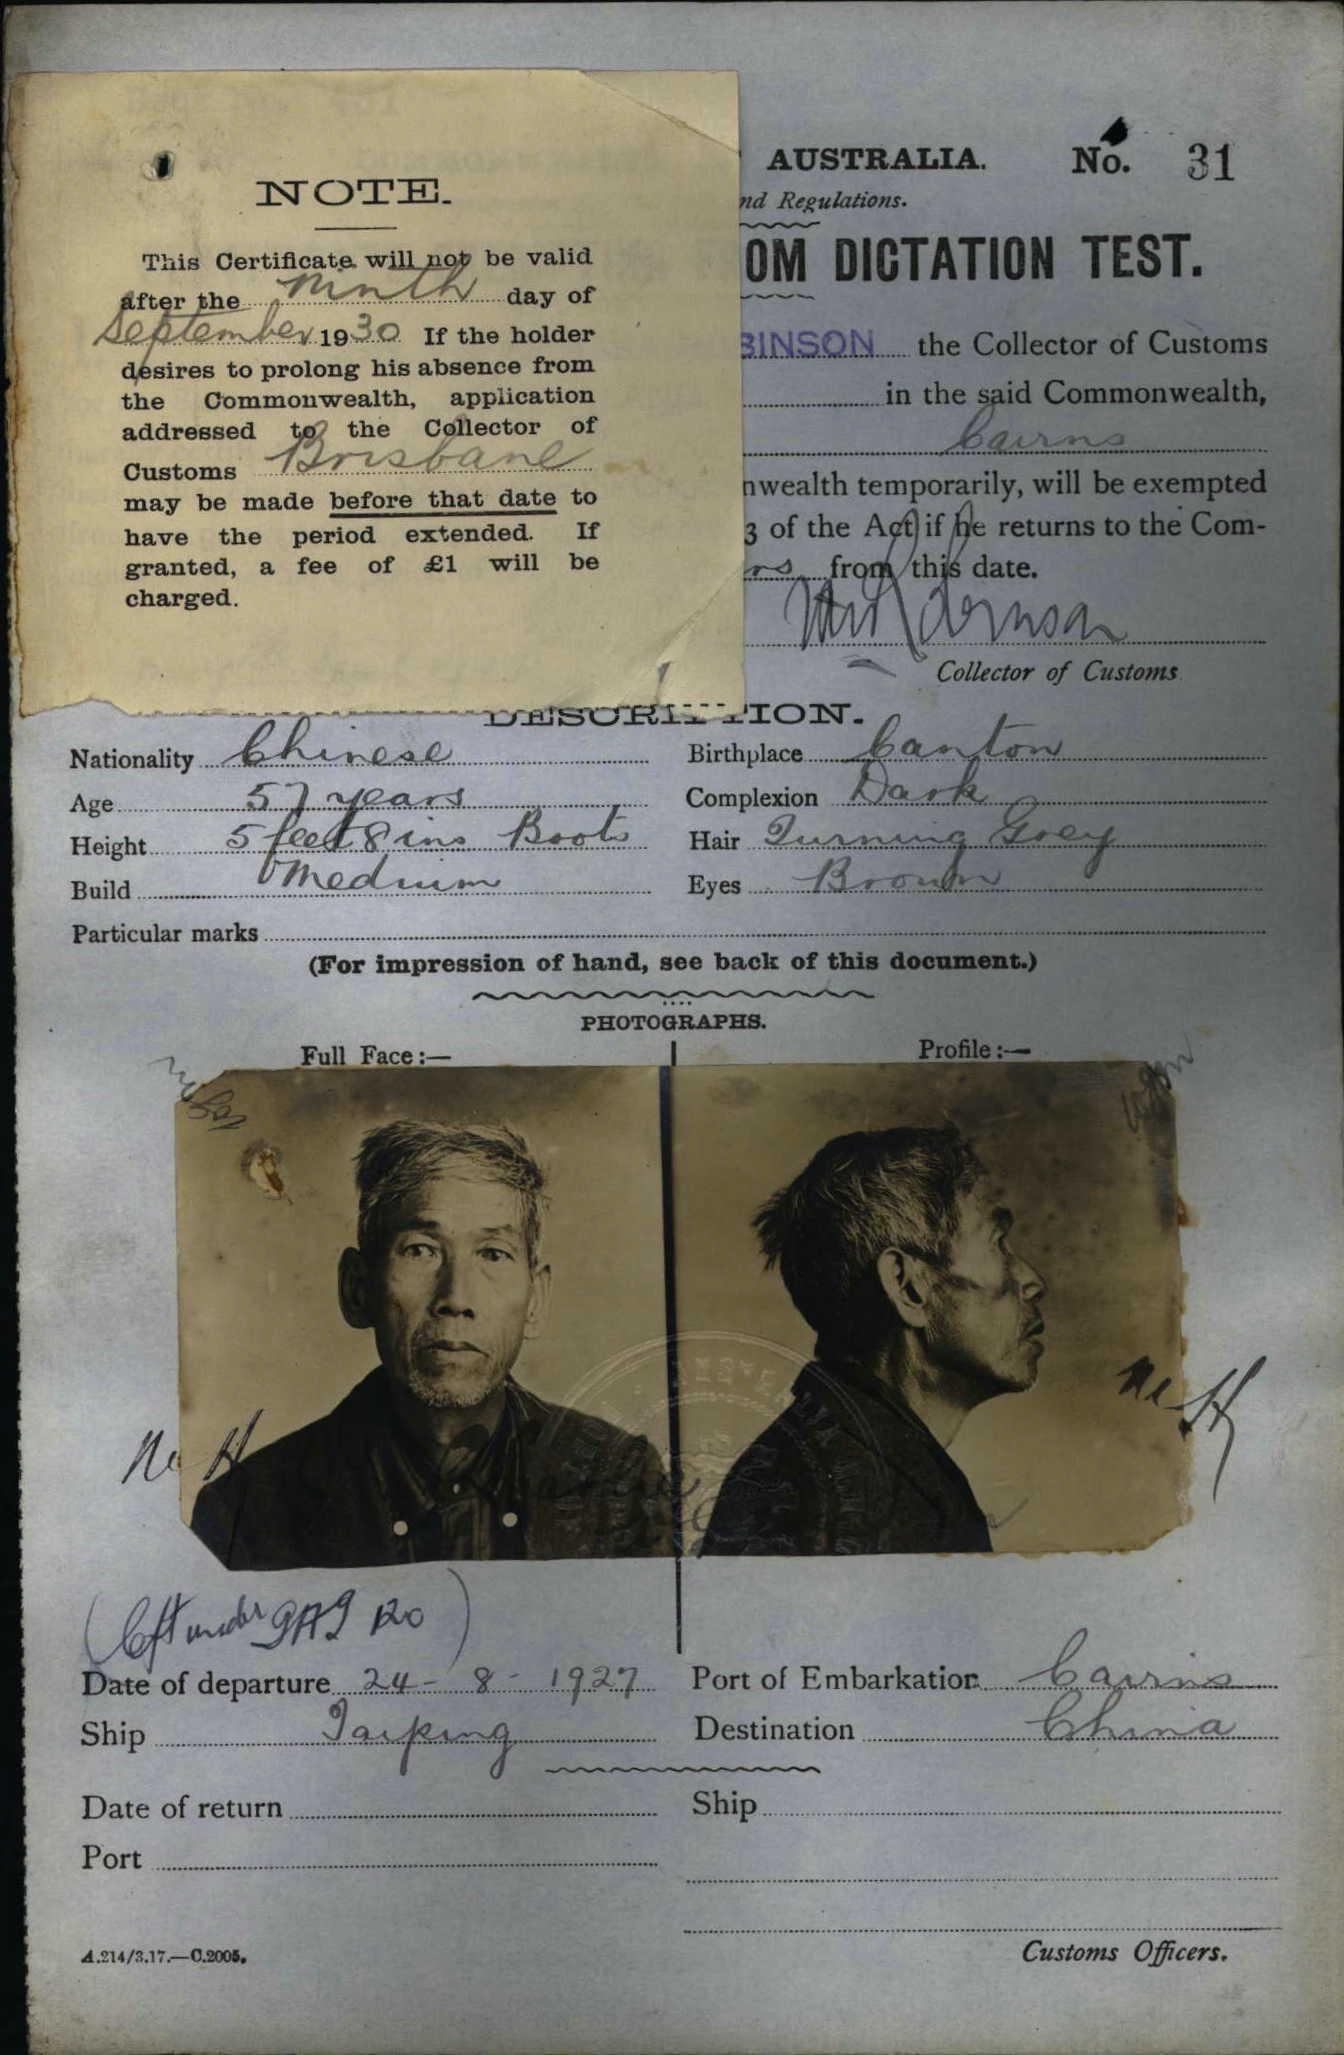 NOTE.
This Certificate will not be valid
after the Ninth day of
September 1930 If the holder
desires to prolong his absence from
the Commonwealth, application
addressed to the Collector of
Customs Brisbane
may be made before that date to
have the period extended. If
granted, a fee of £1 will be
charged.
AUSTRALIA. No. 31
nd Regulations.
OM DICTATION TEST.
BINSON the Collector of Customs
in the said Commonwealth,
Cairns
nwealth temporarily, will be exempted
3 of the Act if he returns to the Com-
rs from this date.
Collector of Customs
DESCRIPTION.
Nationality Chinese Birthplace Canton
Age 57 years Complexion Dark
Height 5 feet 8 ins Boots Hair Turning Grey
Build Medium Eyes Brown
Particular marks
(For impression of hand, see back of this document.)
PHOTOGRAPHS.
Full Face :— Profile :—
(Left under
Date of departure 24 - 8 - 1927 Port of Embarkation Cairns
Ship Taiping Destination China
Date of return Ship
Port
A.214/3.17.—C.2005.
Customs Officers.